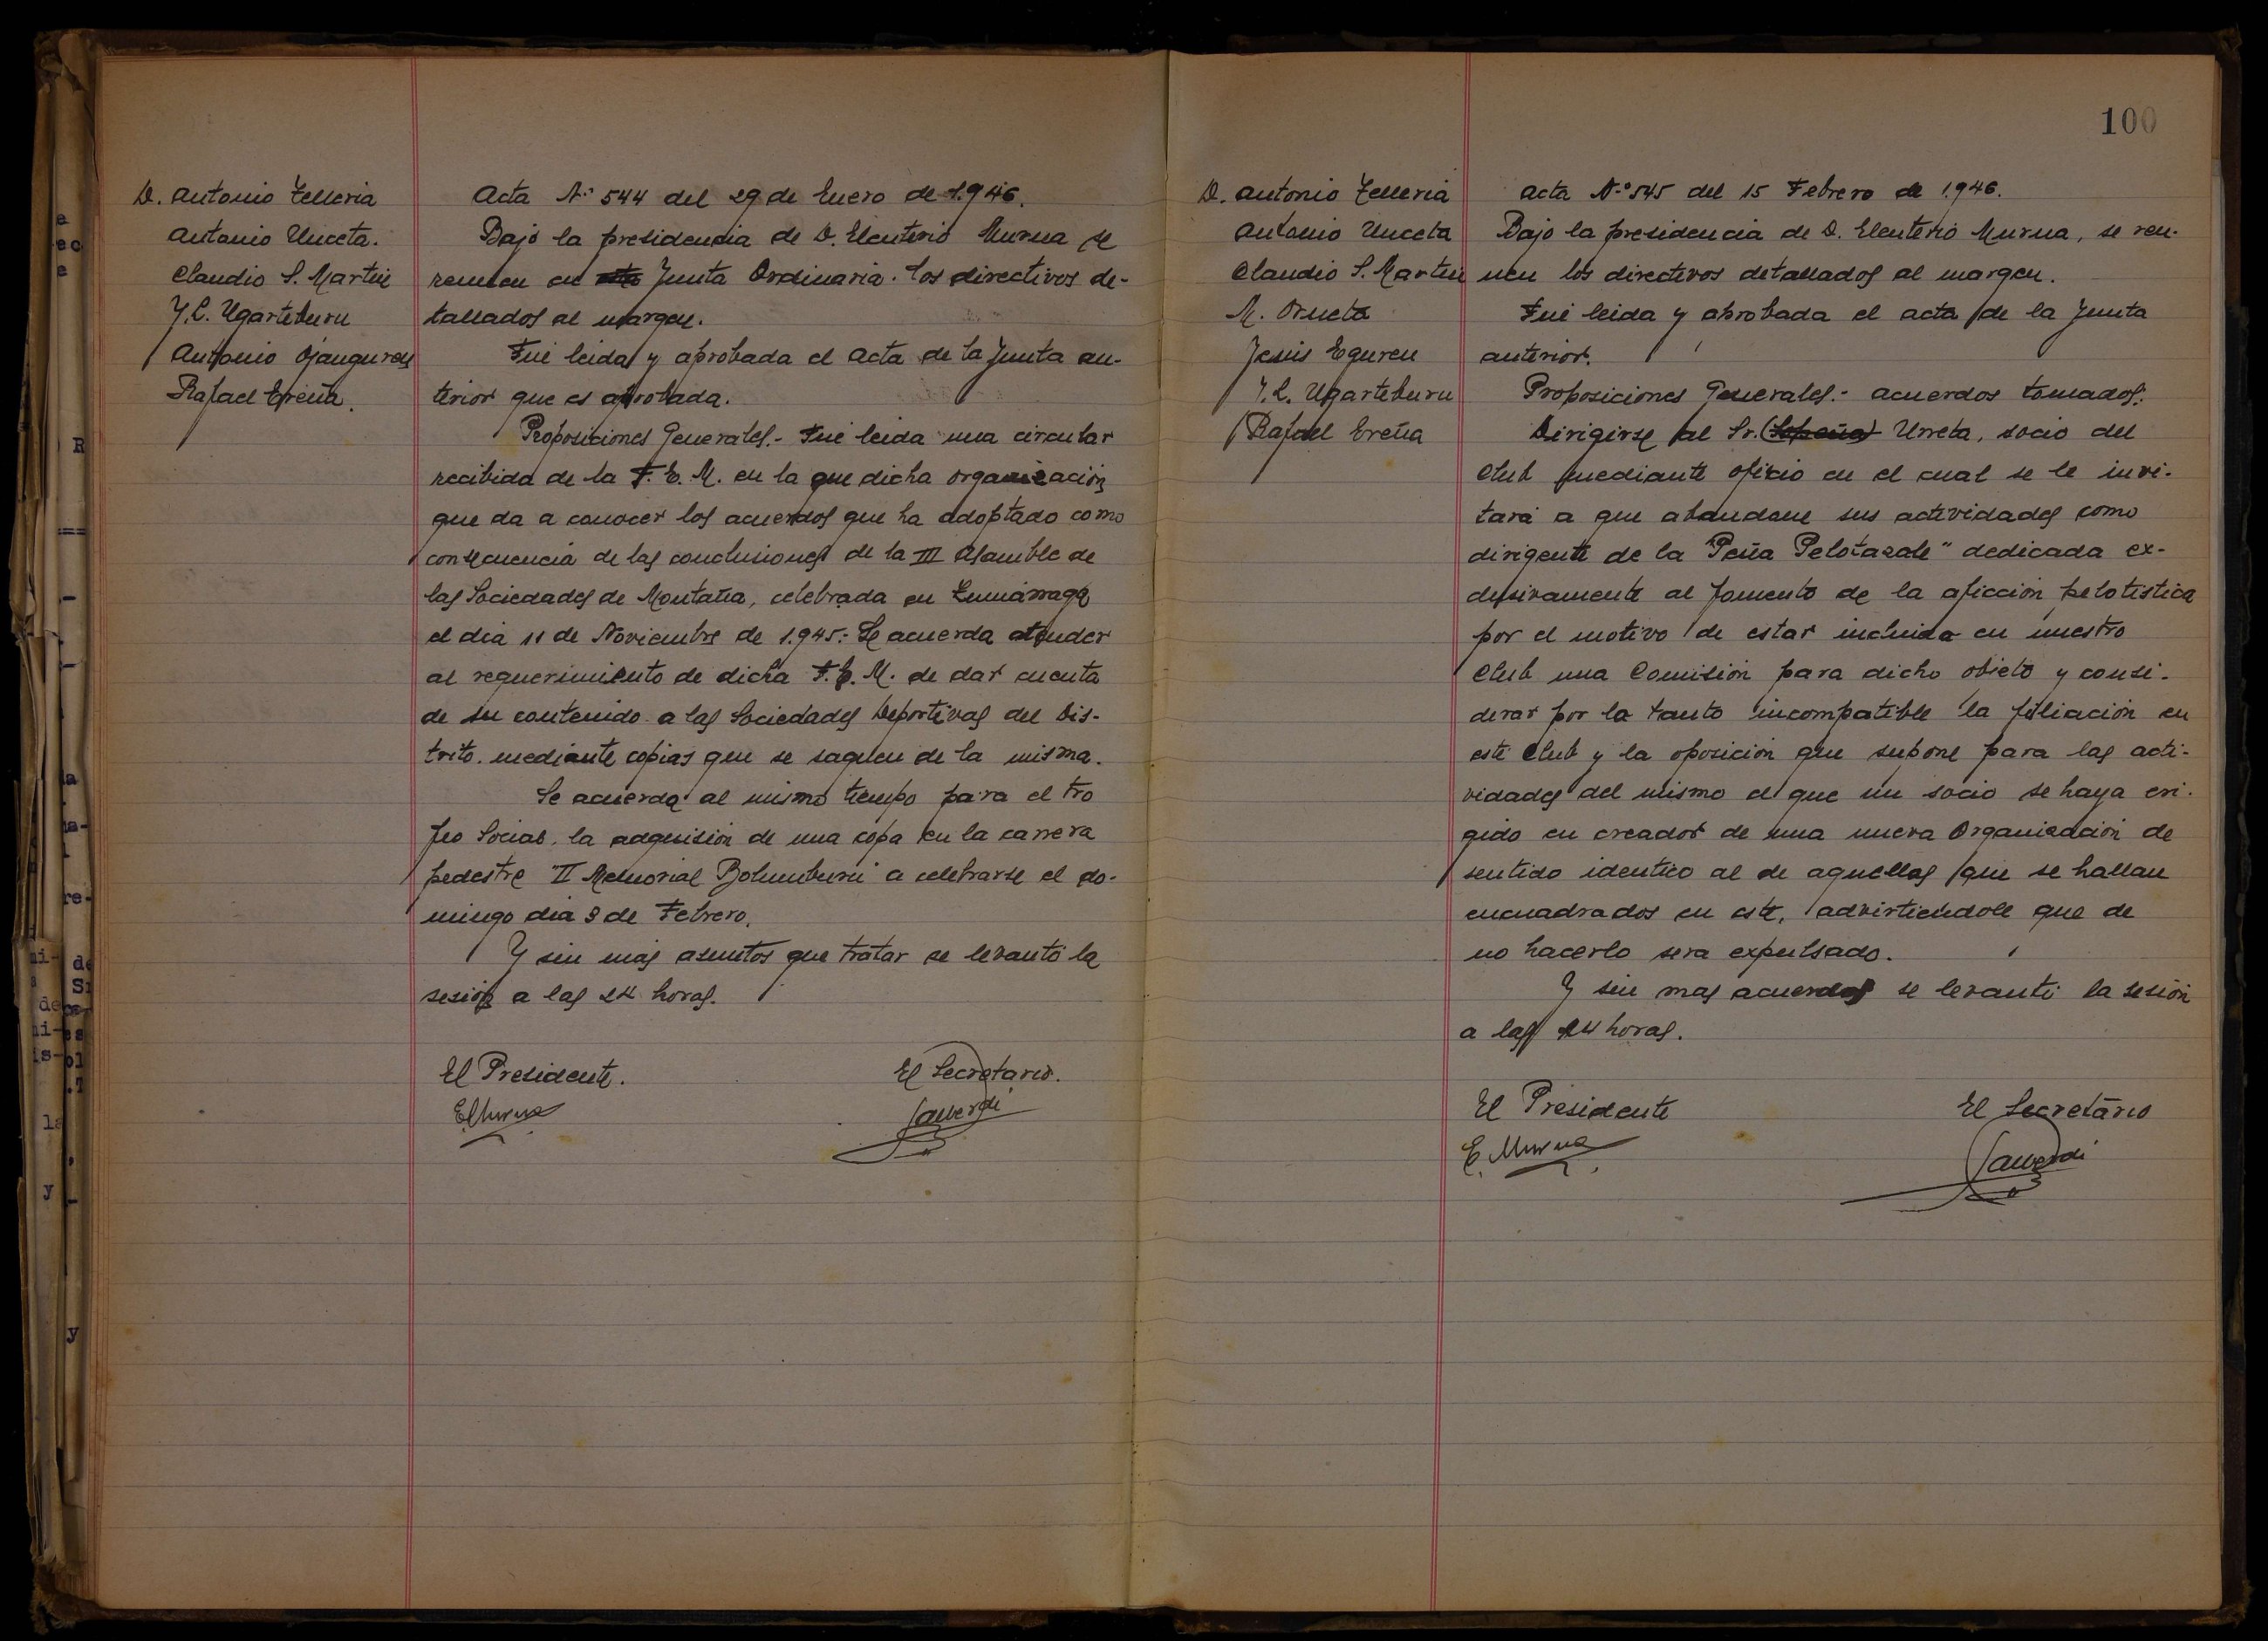 D. Antonio Telleria
Antonio Unceta.
Claudio S. Martin
J.C. Ugarteburu
Antonio Ojanguren
Rafael Ereña.
Acta Nº 544 del 29 de Enero de 1.946.
Bajo la presidencia de D. Eleuterio Murua se
reunen en Junta Ordinaria. los directivos de-
tallados al margen.
Fué leida y aprobada el acta de la Junta an-
terior que es aprobada.
Proposiciones Generales.- Fué leida una circular
recibida de la F.E.M. en la que dicha organización
que da a conocer los acuerdos que ha adoptado como
consecuencia de las conclusiones de la III Asamble de
las Sociedades de Montaña, celebrada en Zumárraga
el dia 11 de Noviembre de 1.945.- Se acuerda atender
al requerimiento de dicha F.E.M. de dar cuenta
de su contenido a las Sociedades Deportivas del Dis-
trito. mediante copias que se saquen de la misma.
Se acuerda al mismo tiempo para el tro
feo Social. la adquisión de una copa en la carrera
pedestre "II Memorial Bolumburu" a celebrarse el do-
mingo dia 3 de Febrero.
Y sin más asuntos que tratar se levantó la
sesión a las 24 horas.
El Presidente.
El Secretario.
EMurua
100
D. Antonio Telleria
Antonio Unceta
Claudio S. Martin
M. Orueta
Jesús Eguren
J.C. Ugarteburu
Rafael Ereña
Acta Nº 545 del 15 Febrero de 1.946.
Bajo la presidencia de D. Eleuterio Murua, se reu-
nen los directivos detallados al margen.
Fué leida y aprobada el acta de la Junta
anterior.
Proposiciones Generales.- acuerdos tomados.
Dirigirse al Sr. Urreta, socio del
Club mediante oficio en el cual se le invi-
tará a que abandone sus actividades como
dirigente de la "Peña Pelotazale" dedicada ex-
clusivamente al fomento de la aficción pelotistica
por el motivo de estar incluida en nuestro
Club una Comisión para dicho objeto y consi-
derar por la tanto incompatible la filiación en
este Club y la oposición que supone para las acti-
vidades del mismo el que un socio se haya eri-
gido en creador de una nueva Organización de
sentido identico al de aquellas que se hallan
encuadrados en este, advirtiendole que de
no hacerlo sera expulsado.
Y sin mas acuerdos se levantó la sesión
a las 24 horas.
El Presidente
El Secretário
E. Murua